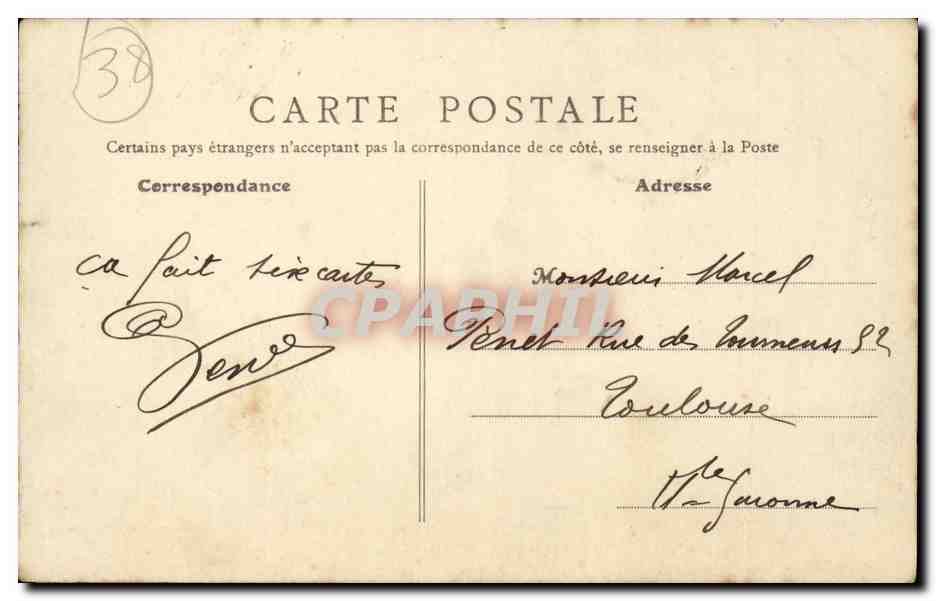 38
CARTE POSTALE
Certains pays étrangers n'acceptant pas la correspondance de ce côté, se renseigner à la Poste
Correspondance
Adresse
ça fait six cartes
Monsieur Marcel
Penet Rue des Tourneurs 52
Toulouse
Hte Garonne
CPAPHIL